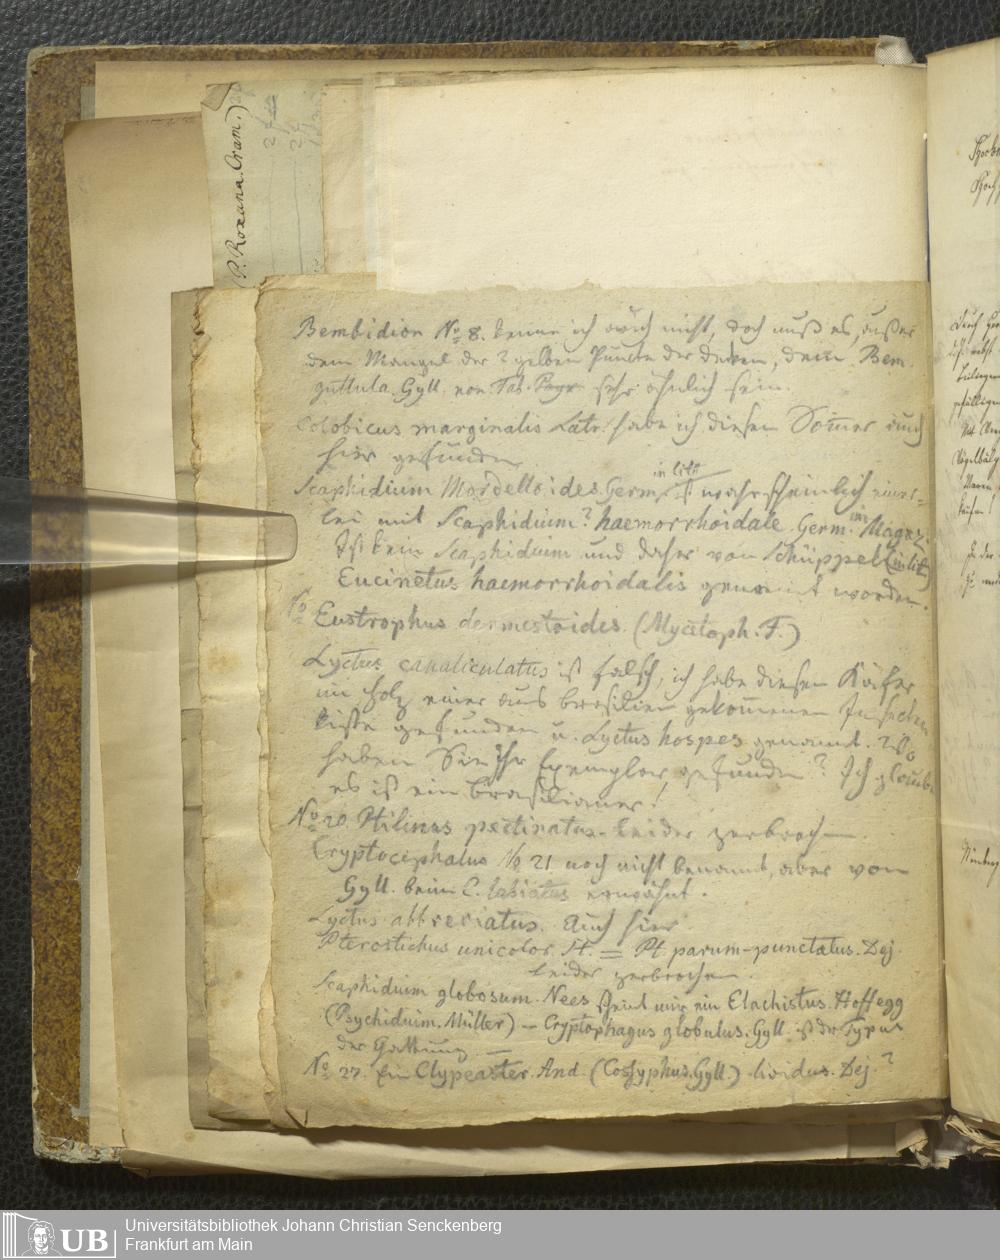 (P. Roxana. Cram.)
Bembidion No 8. kenne ich auch nicht, doch muß es, außer
dem Mangel der 2 gelben Puncte der Decken, dem Bem.
guttula. Gyll. von Tab. sehr ähnlich sein.
Colobicus marginalis Latr. habe ich diesen Somer auch
hier gefunden
in litt
Scaphidium Mordelloides. Germ. ist wahrscheinlich einer-
lei mit Scaphidium? haemorrhoidale. Germ. im Magaz.
Ist kein Scaphidium und daher von Schüppel (in lit.)
Eucinetus haemorrhoidalis genannt worden.
No Eustrophus dermestoides. (Mycetoph. F.)
Lyctus canaliculatus ist falsch, ich habe diesen Käfer
im Holz einer aus Brasilien gekommenen Insecten
kiste gefunden u. Lyctus hospes genannt. Wo
haben Sie Ihr Exemplar gefunden? Ich glaube
es ist ein Brasilianer!
No 20. Ptilinus pectinatus - leider zerbrochen.
Cryptocephalus No 21 noch nicht benannt, aber von
Gyll. beim C. labiatus erwähnt.
Lyctus abbreviatus. Auch hier
Pterostichus unicolor. St. = Pt. parum-punctatus. Dej.
leider zerbrochen.
Scaphidium globosum. Nees scheint mir ein Elachistus. Hoffegg
(Psychidium. Müller) — Cryptophagus globulus. Gyll. ist der Typus
der Gattung —
No 27. Ein Clypeaster. And. (Cossyphus. Gyll.) lividus. Dej.?
Nürnberg
UB
Universitätsbibliothek Johann Christian Senckenberg
Frankfurt am Main